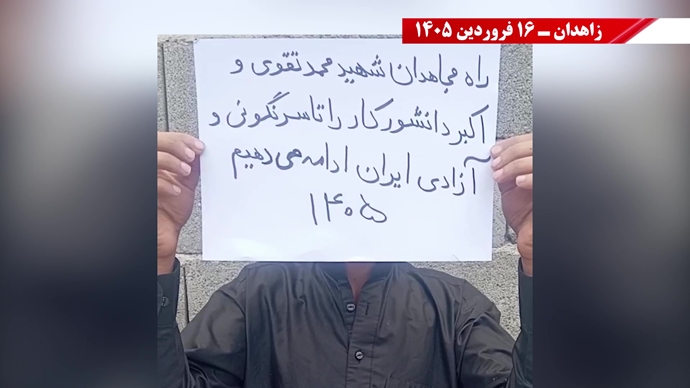 زاهدان ـ ۱۶ فروردین ۱۴۰۵
راه مجاهدان شهید محمد تقوی و
اکبر دانشورکار را تا سرنگونی و
آزادی ایران ادامه می‌دهیم
۱۴۰۵